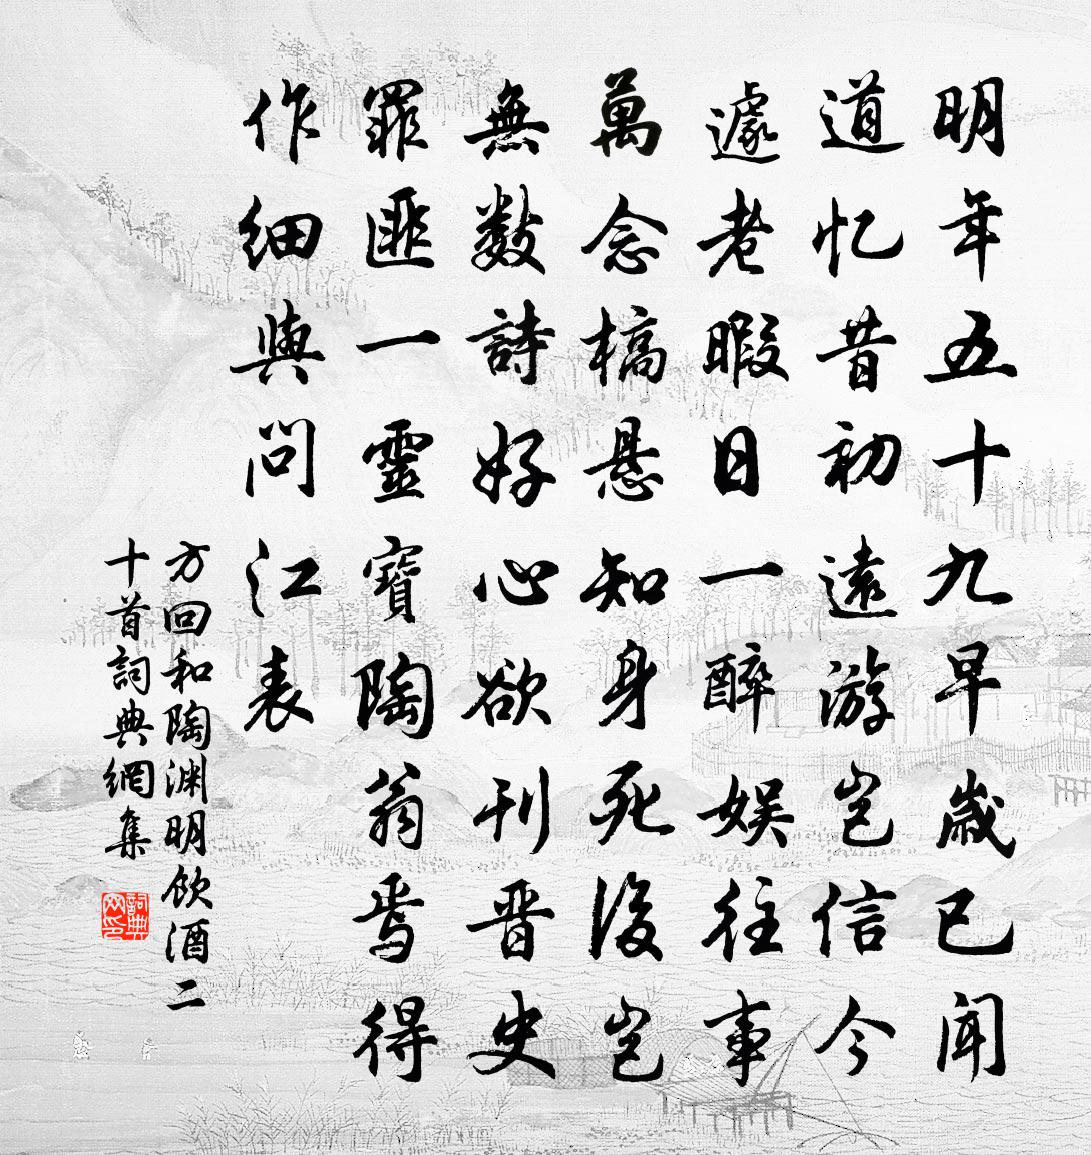 明年五十九早歲已闻
道忆昔初遠游岂信今
遽老暇日一醉娱往事
萬念槁悬知身死後岂
無數詩好心欲刊晋史
罪匪一靈寶陶翁焉得
作細與問江表
方回和陶渊明飲酒二
十首詞典網集
詞典网印